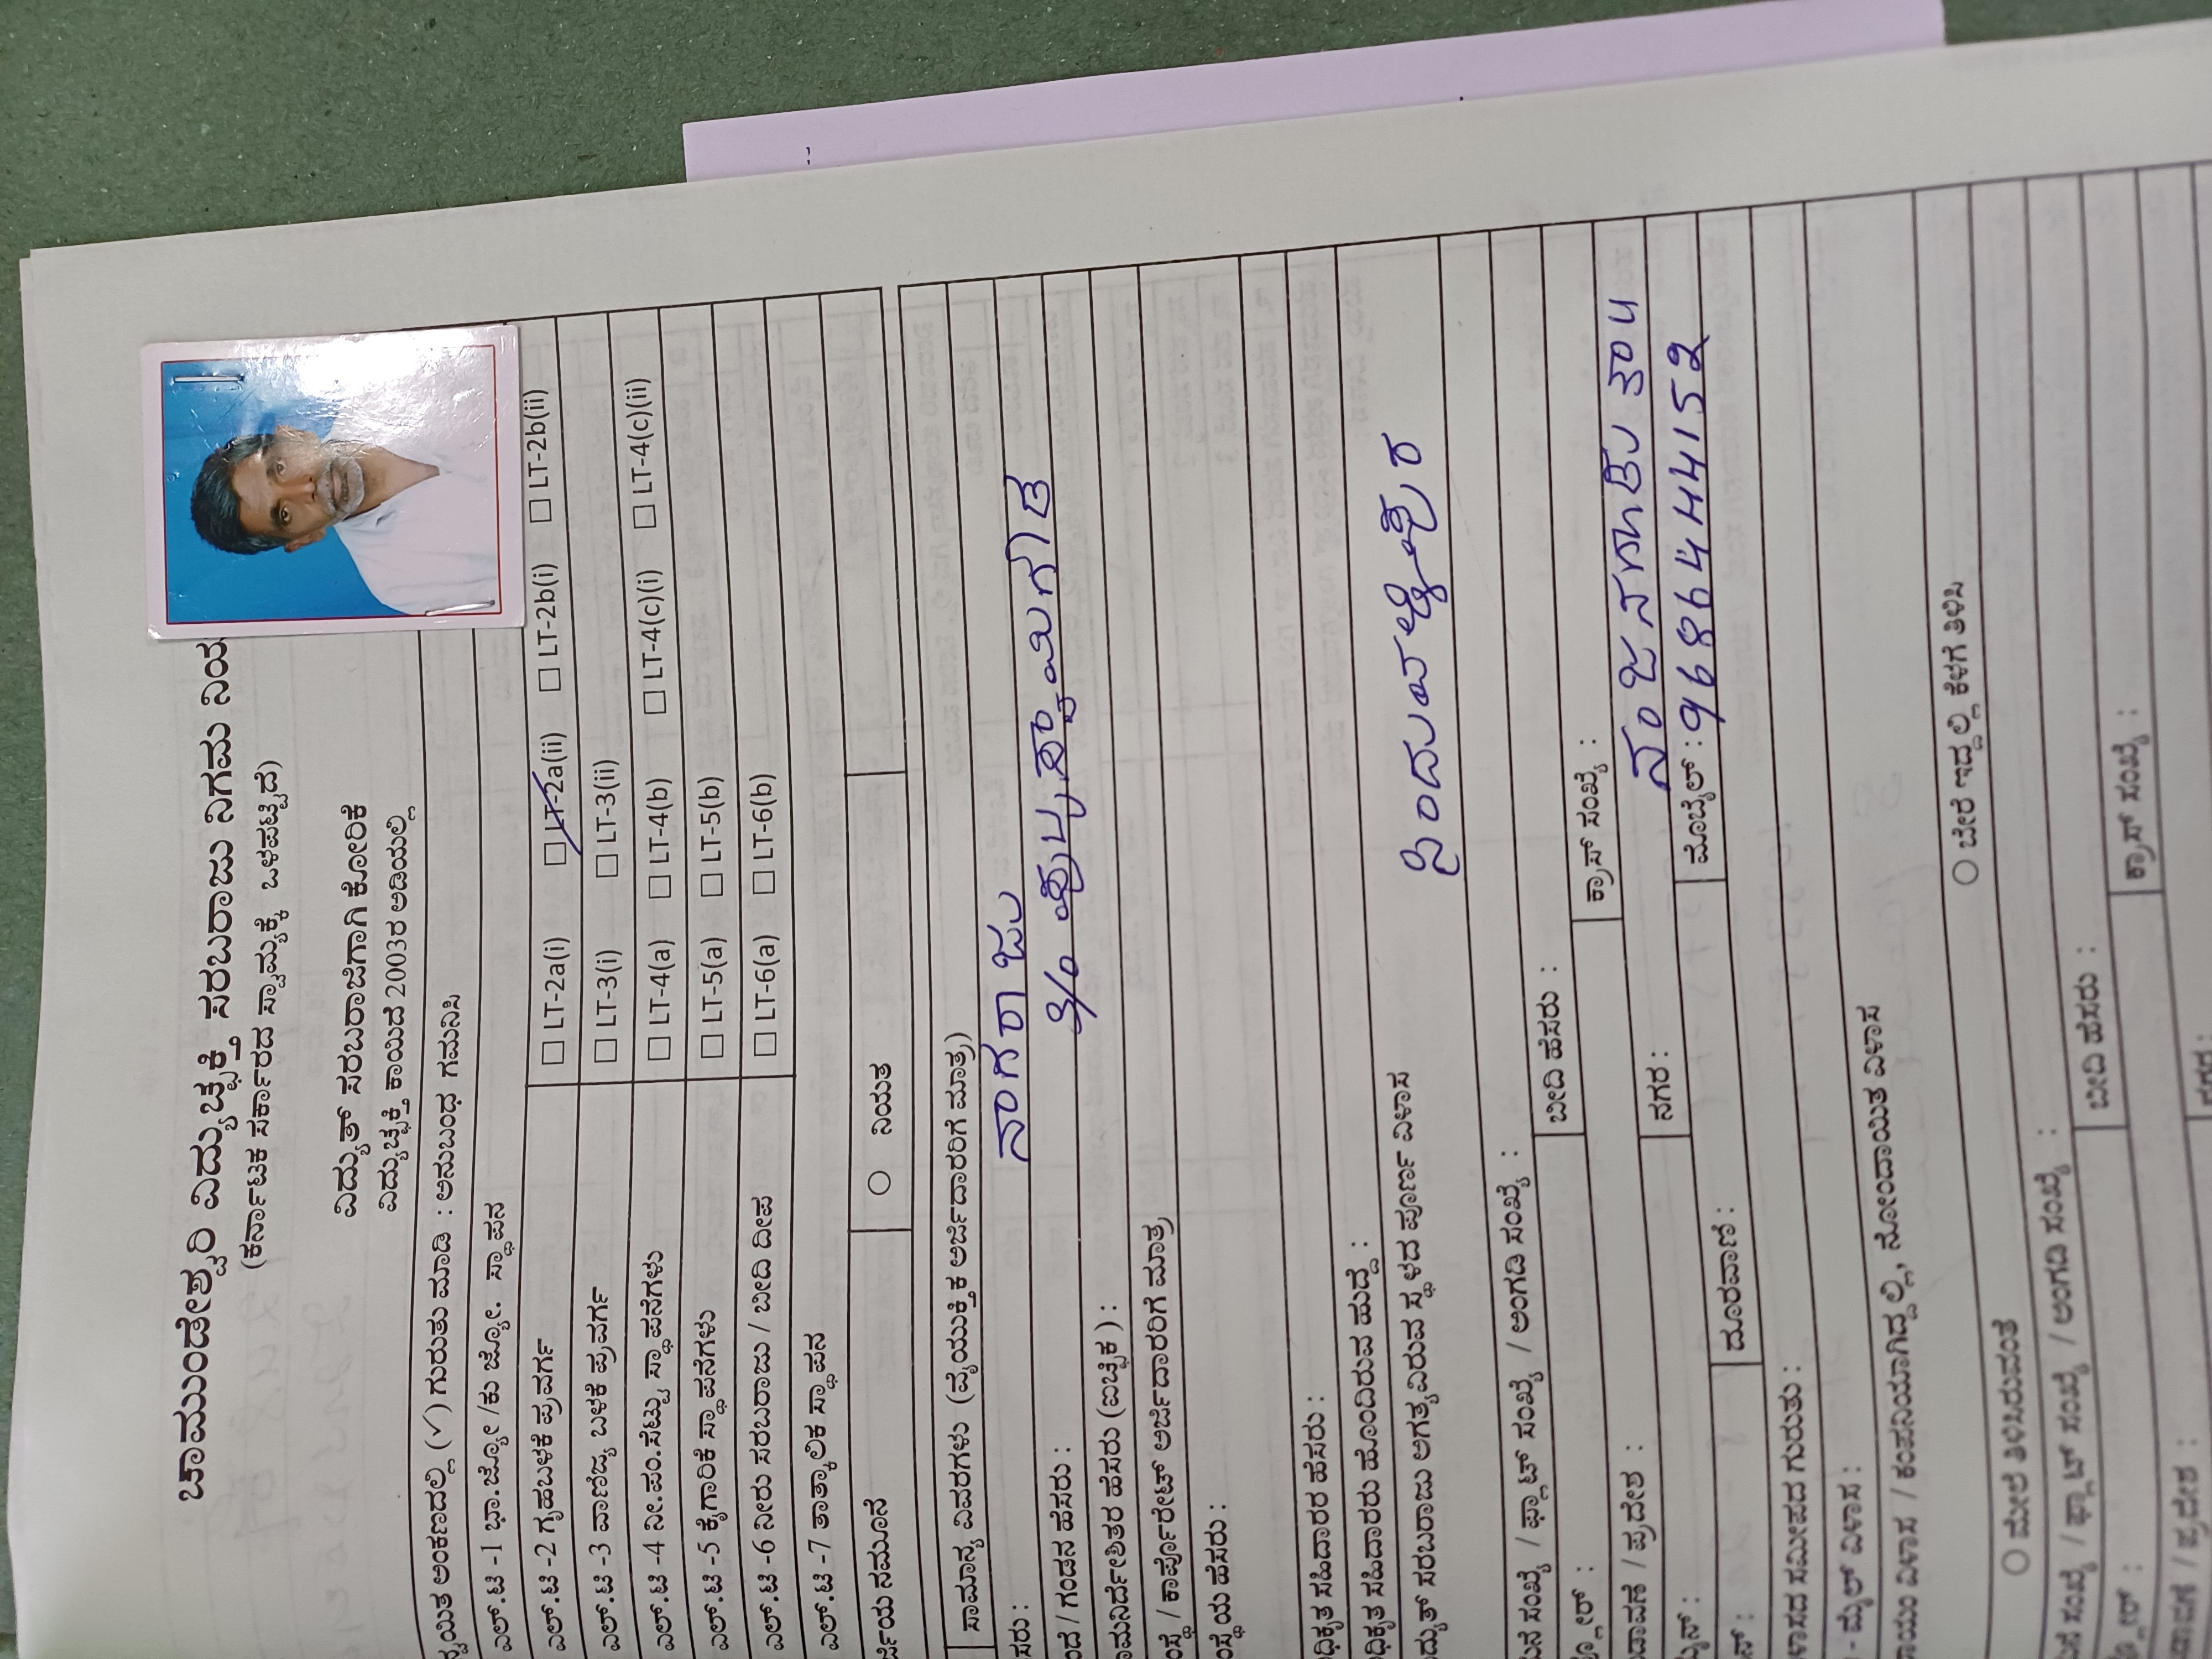 ಚಾಮುಂಡೇಶ್ವರಿ ವಿದ್ಯುಚ್ಛಕ್ತಿ ಸರಬರಾಜು ನಿಗಮ ನಿಯ
(ಕರ್ನಾಟಕ ಸರ್ಕಾರದ ಸ್ವಾಮ್ಯಕ್ಕೆ ಒಳಪಟ್ಟಿದೆ)
ವಿದ್ಯುತ್ ಸರಬರಾಜಿಗಾಗಿ ಕೋರಿಕೆ
ವಿದ್ಯುಚ್ಛಕ್ತಿ ಕಾಯಿದೆ 2003ರ ಅಡಿಯಲ್ಲಿ
ನ್ವಯಿತ ಅಂಕಣದಲ್ಲಿ (✓) ಗುರುತು ಮಾಡಿ : ಅನುಬಂಧ ಗಮನಿಸಿ
ಎಲ್.ಟಿ -1 ಭಾ.ಜ್ಯೋ /ಕು ಜ್ಯೋ. ಸ್ಥಾಪನ
ಎಲ್.ಟಿ -2 ಗೃಹಬಳಕೆ ಪ್ರವರ್ಗ □ LT-2a(i) □ LT-2a(ii) □ LT-2b(i) □ LT-2b(ii)
ಎಲ್.ಟಿ -3 ವಾಣಿಜ್ಯ ಬಳಕೆ ಪ್ರವರ್ಗ □ LT-3(i) □ LT-3(ii)
ಎಲ್.ಟಿ -4 ನೀ.ಪಂ.ಸೆಟ್ಟು ಸ್ಥಾಪನೆಗಳು □ LT-4(a) □ LT-4(b) □ LT-4(c)(i) □ LT-4(c)(ii)
ಎಲ್.ಟಿ -5 ಕೈಗಾರಿಕೆ ಸ್ಥಾಪನೆಗಳು □ LT-5(a) □ LT-5(b)
ಎಲ್.ಟಿ -6 ನೀರು ಸರಬರಾಜು / ಬೀದಿ ದೀಪ □ LT-6(a) □ LT-6(b)
ಎಲ್.ಟಿ -7 ತಾತ್ಕಾಲಿಕ ಸ್ಥಾಪನ
ರ್ಜಿಯ ನಮೂನೆ ○ ನಿಯತ
ಸಾಮಾನ್ಯ ವಿವರಗಳು (ವೈಯುಕ್ತಿಕ ಅರ್ಜಿದಾರರಿಗೆ ಮಾತ್ರ)
ಸರು : ನಾಗರಾಜು
ಂದೆ / ಗಂಡನ ಹೆಸರು :
ಾಮನಿರ್ದೇಶಿತರ ಹೆಸರು (ಐಚ್ಛಿಕ) :
ಂಸ್ಥೆ / ಕಾರ್ಪೊರೇಟ್ ಅರ್ಜಿದಾರರಿಗೆ ಮಾತ್ರ
ಂಸ್ಥೆಯ ಹೆಸರು :
ಧಿಕೃತ ಸಹಿದಾರರ ಹೆಸರು :
ಧಿಕೃತ ಸಹಿದಾರರು ಹೊಂದಿರುವ ಹುದ್ದೆ :
ದ್ಯುತ್ ಸರಬರಾಜು ಅಗತ್ಯವಿರುವ ಸ್ಥಳದ ಪೂರ್ಣ ವಿಳಾಸ
ನೆ ಸಂಖ್ಯೆ / ಫ್ಲಾಟ್ ಸಂಖ್ಯೆ / ಅಂಗಡಿ ಸಂಖ್ಯೆ :
ಫ್ಲೋರ್ : ಬೀದಿ ಹೆಸರು :
ಡಾವಣೆ / ಪ್ರದೇಶ : ಕ್ರಾಸ್ ಸಂಖ್ಯೆ :
ನಗರ : ನಂಜನಗೂಡು 304
ನ್ : ದೂರವಾಣಿ : ಮೊಬೈಲ್ : 9686444152
ಳಾಸದ ಸಮೀಪದ ಗುರುತು :
- ಮೈಲ್ ವಿಳಾಸ :
ಾಯಂ ವಿಳಾಸ / ಕಂಪನಿಯಾಗಿದ್ದಲ್ಲಿ, ನೋಂದಾಯಿತ ವಿಳಾಸ
○ ಮೇಲೆ ತಿಳಿಸಿರುವಂತೆ ○ ಬೇರೆ ಇದ್ದಲ್ಲಿ ಕೆಳಗೆ ತಿಳಿಸಿ
ನೆ ಸಂಖ್ಯೆ / ಫ್ಲಾಟ್ ಸಂಖ್ಯೆ / ಅಂಗಡಿ ಸಂಖ್ಯೆ :
ಫ್ಲೋರ್ : ಬೀದಿ ಹೆಸರು :
ಡಾವಣೆ / ಪ್ರದೇಶ : ಕ್ರಾಸ್ ಸಂಖ್ಯೆ :
ನಗರ :